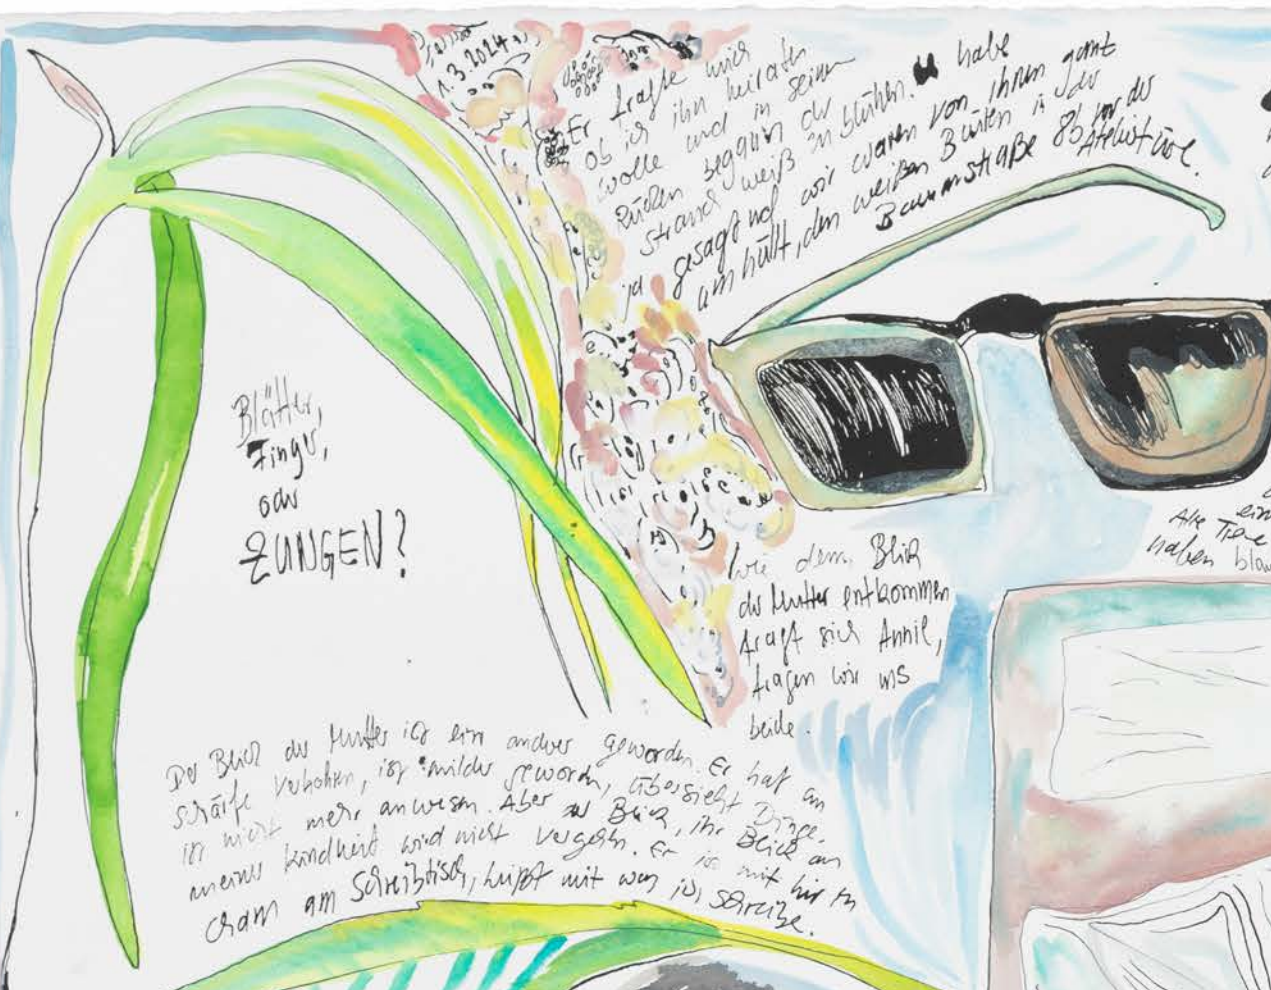 1.3.2024
Er fragte mich
ob ich ihn heiraten
wolle und in seinem
Rücken begann der
Strauch weiß zu blühen.
habe
ja gesagt und wir waren von ihnen ganz
umhüllt, den weißen Blüten in der
Baumstraße 8b vor der
Ateliertüre.
Blätter,
Finger,
oder
ZUNGEN?
Wie dem Blick
der Mutter entkommen
fragt sich Annie,
fragen wir uns
beide.
Alle Tiere
haben
Der Blick der Mutter ist ein anderer geworden. Er hat an
Schärfe verloren, ist milder geworden, übersieht Dinge,
ist nicht mehr anwesend. Aber der Blick, ihr Blick an
meiner Kindheit wird nicht vergehen. Er ist mit mir in
am Schreibtisch, hüpft mit was ich schreibe.